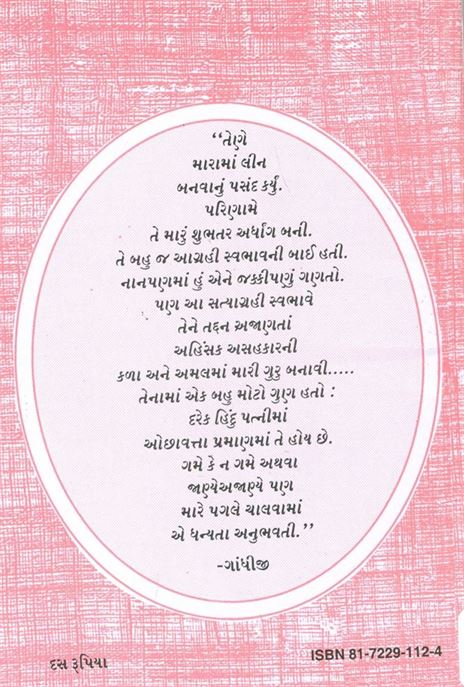 “તેણે
મારામાં લીન
બનવાનું પસંદ કર્યું.
પરિણામે
તે મારું શુભતર અર્ધાંગ બની.
તે બહુ જ આગ્રહી સ્વભાવની બાઈ હતી.
નાનપણમાં હું એને જક્કીપણું ગણતો.
પણ આ સત્યાગ્રહી સ્વભાવે
તેને તદ્દન અજાણતાં
અહિંસક અસહકારની
કળા અને અમલમાં મારી ગુરુ બનાવી.....
તેનામાં એક બહુ મોટો ગુણ હતો :
દરેક હિંદુ પત્નીમાં
ઓછાવત્તા પ્રમાણમાં તે હોય છે.
ગમે કે ન ગમે અથવા
જાણ્યેઅજાણ્યે પણ
મારે પગલે ચાલવામાં
એ ધન્યતા અનુભવતી.”
-ગાંધીજી
દસ રૂપિયા
ISBN 81-7229-112-4